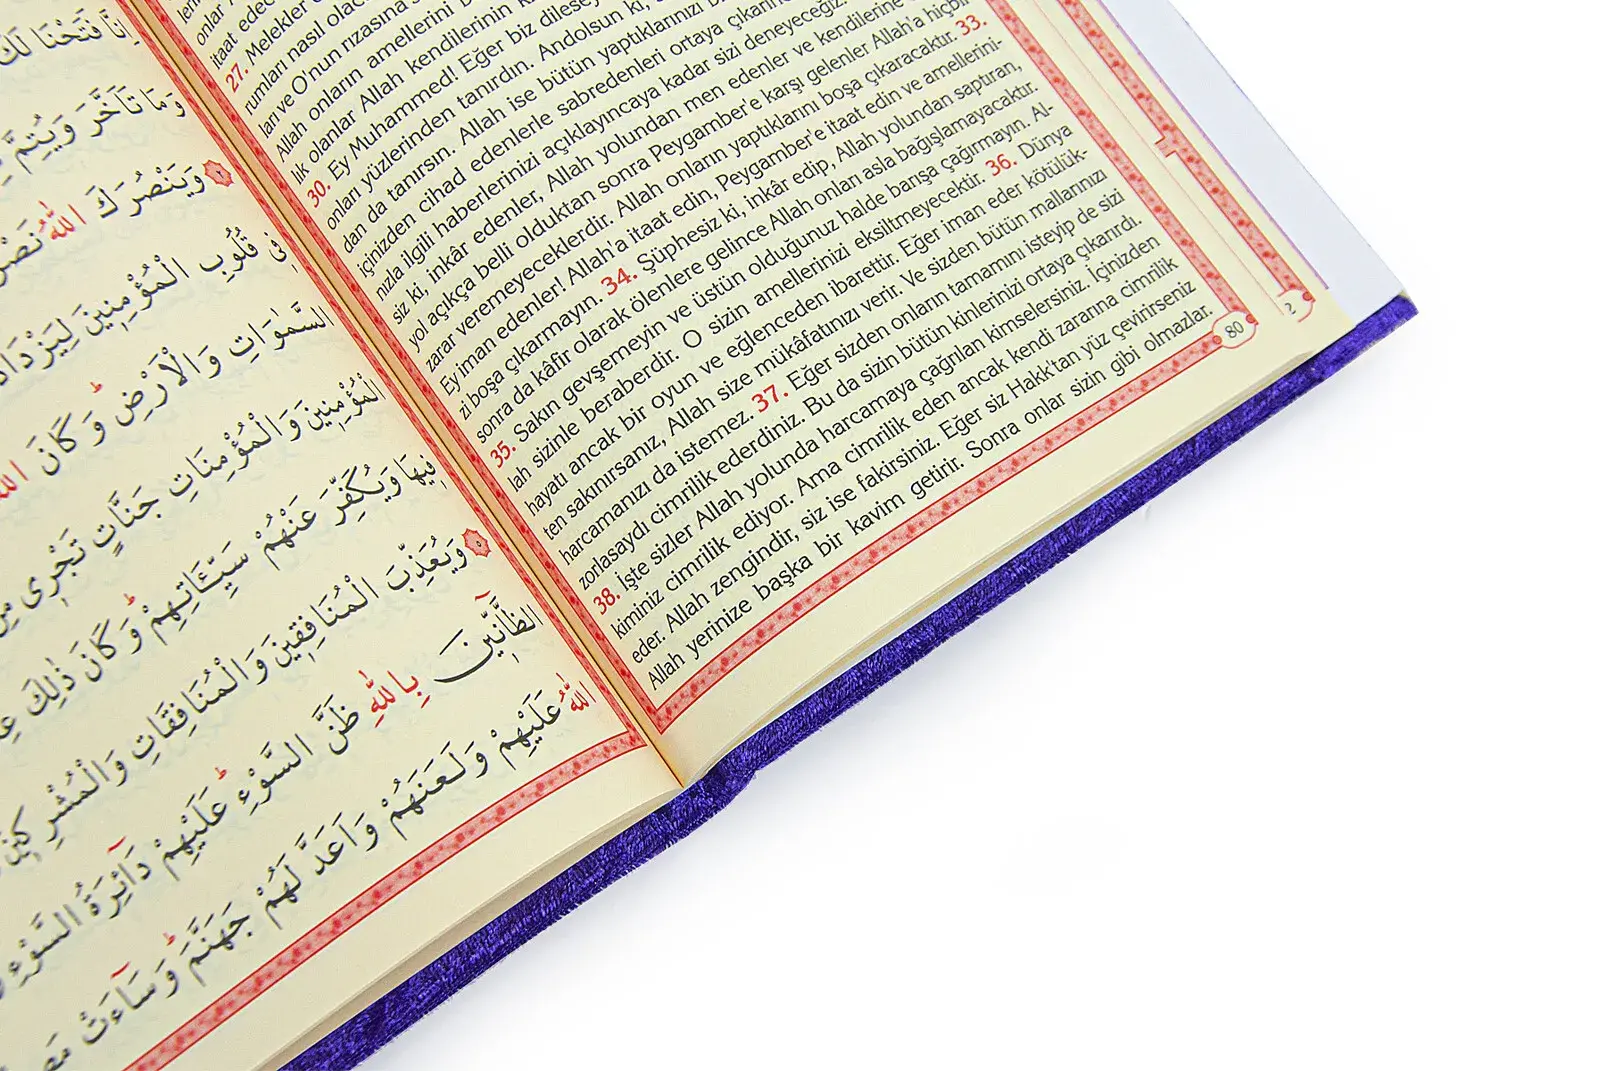 onlar A
itaat edec
27. Melekler
rumları nasıl olaca
ları ve O'nun rızasına
Allah onların amellerini
lik olanlar Allah kendilerinin
30. Ey Muhammed! Eğer biz dilese
onları yüzlerinden tanırdın. Andolsun ki,
dan da tanırsın. Allah ise bütün yaptıklarınızı
içinizden cihad edenlerle sabredenleri ortaya çıkarın
nızla ilgili haberlerinizi açıklayıncaya kadar sizi deneyeceğiz.
siz ki, inkâr edenler, Allah yolundan men edenler ve kendilerine
yol açıkça belli olduktan sonra Peygamber'e karşı gelenler Allah'a hiçbir
zarar veremeyeceklerdir. Allah onların yaptıklarını boşa çıkaracaktır. 33.
Ey iman edenler! Allah'a itaat edin, Peygamber'e itaat edin ve amellerini-
zi boşa çıkarmayın. 34. Şüphesiz ki, inkâr edip, Allah yolundan saptıran,
sonra da kâfir olarak ölenlere gelince Allah onları asla bağışlamayacaktır.
35. Sakın gevşemeyin ve üstün olduğunuz halde barışa çağırmayın. Al-
lah sizinle beraberdir. O sizin amellerinizi eksiltmeyecektir. 36. Dünya
hayatı ancak bir oyun ve eğlenceden ibarettir. Eğer iman eder kötülük-
ten sakınırsanız, Allah size mükâfatınızı verir. Ve sizden bütün mallarınızı
harcamanızı da istemez. 37. Eğer sizden onların tamamını isteyip de sizi
zorlasaydı cimrilik ederdiniz. Bu da sizin bütün kinlerinizi ortaya çıkarırdı.
38. İşte sizler Allah yolunda harcamaya çağrılan kimselersiniz. İçinizden
kiminiz cimrilik ediyor. Ama cimrilik eden ancak kendi zararına cimrilik
eder. Allah zengindir, siz ise fakirsiniz. Eğer siz Hakk'tan yüz çevirirseniz
Allah yerinize başka bir kavim getirir. Sonra onlar sizin gibi olmazlar.
80
2
اِنَّا فَتَحْنَا لَكَ
وَمَا تَاَخَّرَ وَيُتِمَّ
٢ وَيَنْصُرَكَ اللّٰهُ نَصْرًا
فِى قُلُوبِ الْمُؤْمِنِينَ لِيَزْدَادُ
السَّمٰوَاتِ وَالْاَرْضِ وَكَانَ اللّٰهُ
الْمُؤْمِنِينَ وَالْمُؤْمِنَاتِ جَنَّاتٍ تَجْرِى مِنْ
فِيهَا وَيُكَفِّرَ عَنْهُمْ سَيِّـَٔاتِهِمْ وَكَانَ ذٰلِكَ عِنْ
٥ وَيُعَذِّبَ الْمُنَافِقِينَ وَالْمُنَافِقَاتِ وَالْمُشْرِكِينَ
الظَّٓانِّينَ بِاللّٰهِ ظَنَّ السَّوْءِ عَلَيْهِمْ دَٓائِرَةُ السَّوْءِ وَ
اللّٰهُ عَلَيْهِمْ وَلَعَنَهُمْ وَاَعَدَّ لَهُمْ جَهَنَّمَ وَسَٓاءَتْ مَص